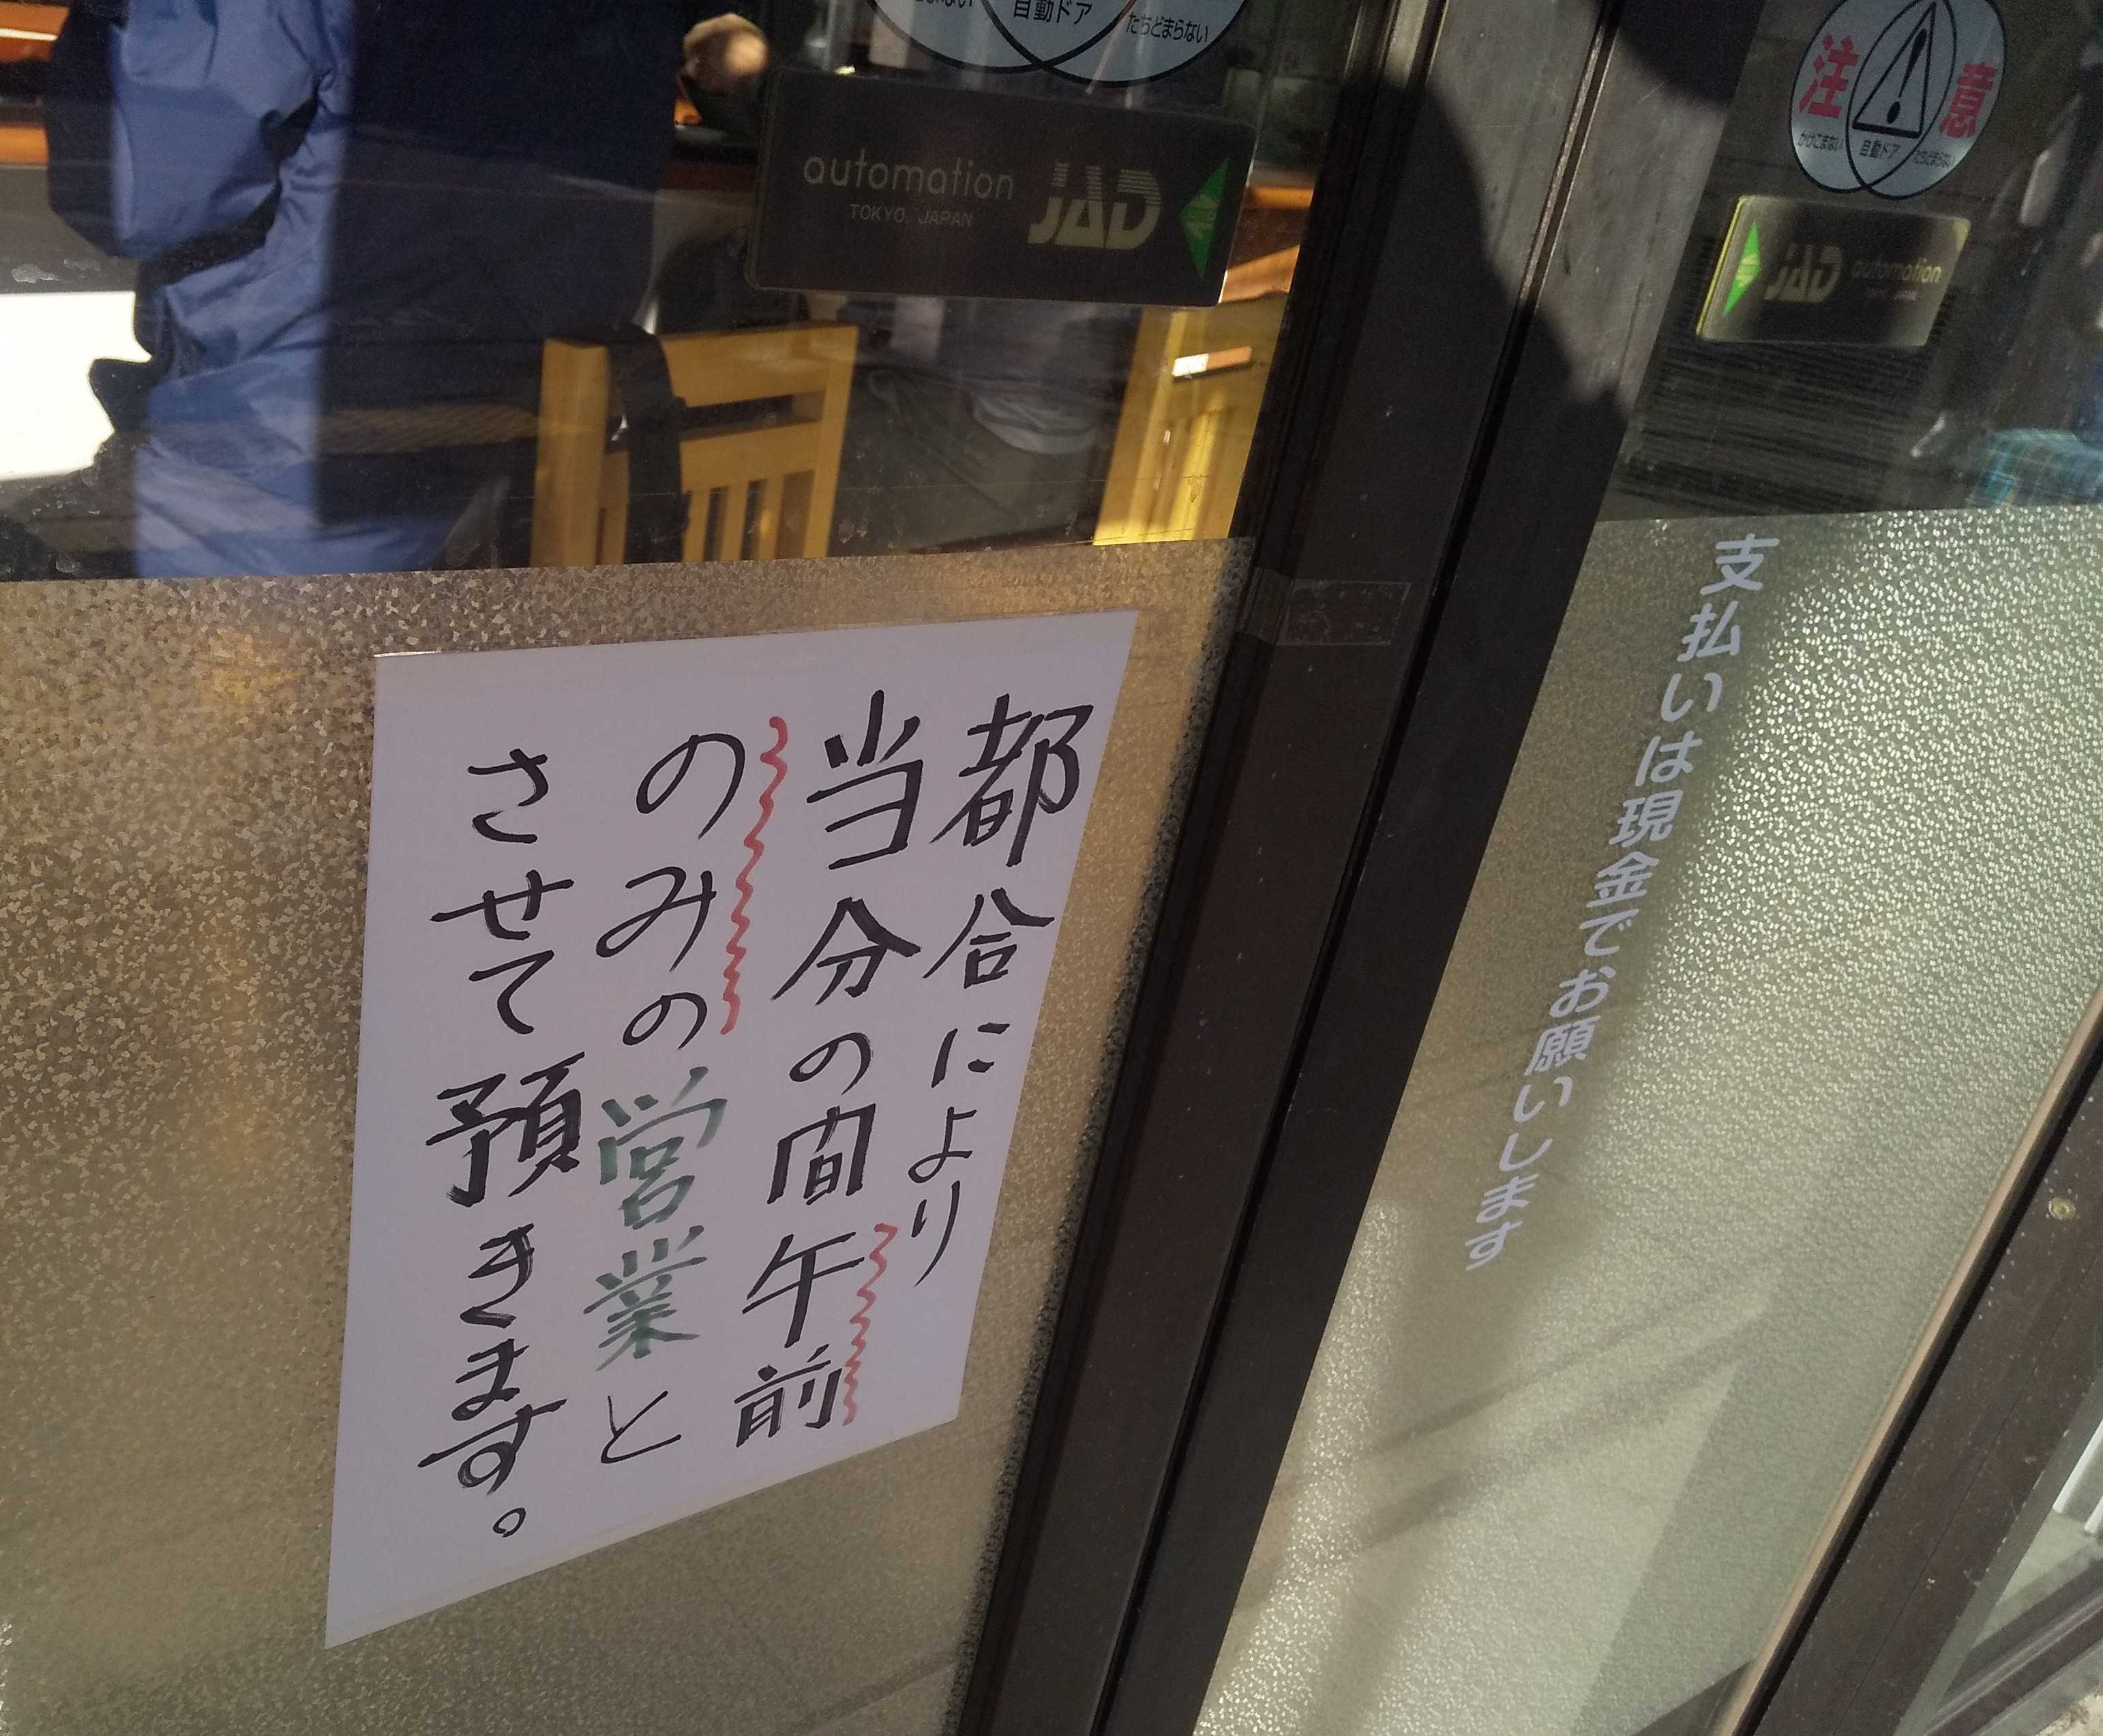 こまない
自動ドア
たちどまらない
automation
TOKYO, JAPAN
JAD
注意
かけこまない
自動ドア
たちどまらない
JAD automation
支払いは現金でお願いします
都合により
当分の間午前
のみの営業と
させて預きます。